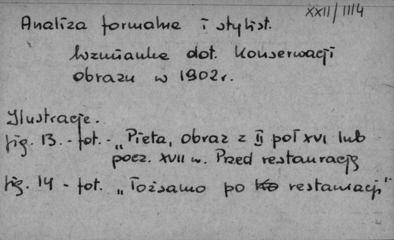 XXII/1114
Analiza formalna i stylist.
Wzmianka dot. konserwacji
obrazu w 1902r.
Ilustracje.
fig. 13. - fot. - „Pieta, obraz z II poł XVI lub
pocz. XVII w. Przed restauracją
fig. 14 - fot. „Tożsamo po restauracji"